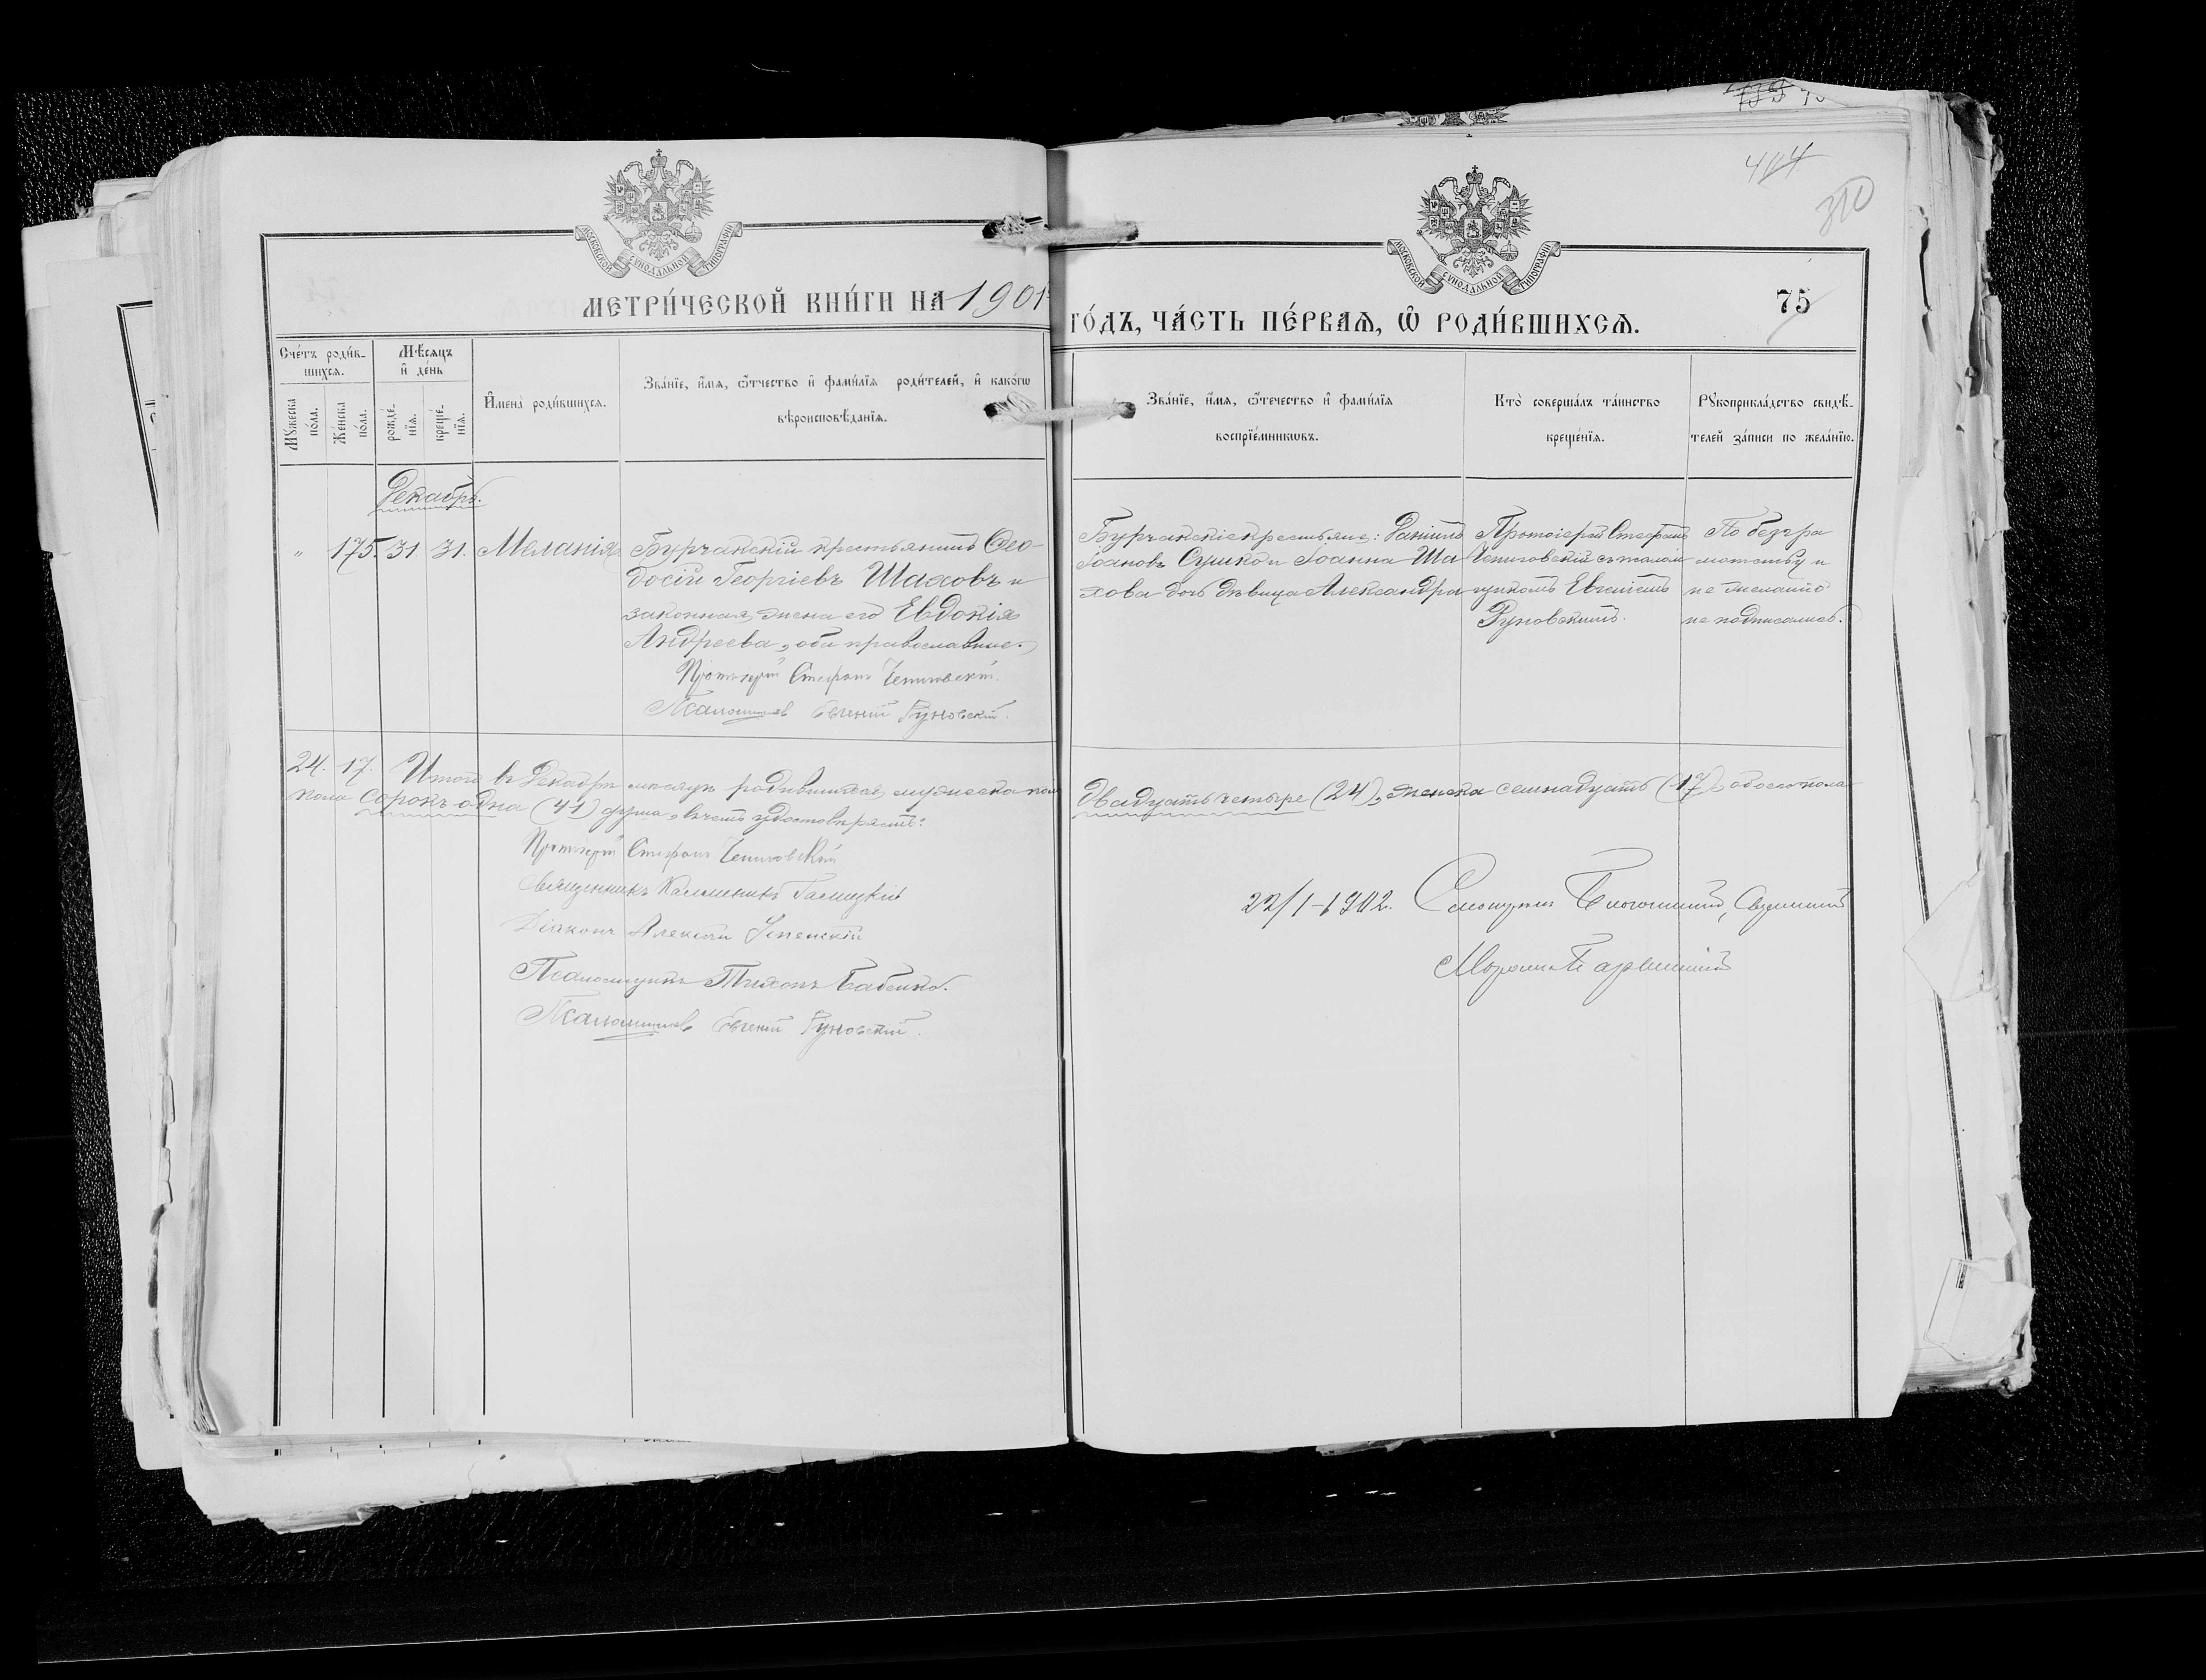 404
310
МОСКОВСКОЙ СѴНОДАЛЬНОЙ ТИПОГРАФІИ
МОСКОВСКОЙ СѴНОДАЛЬНОЙ ТИПОГРАФІИ
75
МЕТРИ́ЧЕСКОЙ КНИ́ГИ НА 1901
ГО́ДЪ, ЧА́СТЬ ПЕ́РВАЯ, Ѡ҆ РОДИ́ВШИХСЯ.
Сче́тъ роди́в-
шихся.
Мꙋ́жеска по́ла.
Же́нска по́ла.
Мѣ́сяцъ и҆ де́нь
рожде́-нїя.
креще́-нїя.
И҆мена̀ роди́вшихся.
Зва́нїе, и҆́мя, ѻ҆́тчество и҆ фами́лїя роди́телей, и҆ како́гѡ
вѣроисповѣ́данїя.
Зва́нїе, и҆́мя, ѻ҆́течество и҆ фами́лїя
воспрїе́мникѡвъ.
Кто̀ соверша́лъ та́инство
креще́нїя.
Рꙋкоприкла́дство свидѣ́-
телей за́писи по жела́нїю.
Декабрь.
" 175. 31. 31. Меланія
Бурчакскій крестьянинъ Ѳео-
досій Георгіевъ Шаховъ и
законная жена его Евдокія
Андреева, оба православные.
Протоіерей Стефанъ
Псаломщикъ Евгеній Руновскій.
Бурчакскіе крестьяне: Даніилъ
Іоановъ Сушко и Іоанна Ша-
хова дочь дѣвица Александра
Протоіерей Стефанъ
съ псалом-
щикомъ Евгеніемъ
Руновскимъ.
По безгра
мотству и
не желанію
не подписались.
24. 17. Итого въ Декабрѣ мѣсяцѣ родившихся мужеска пола
двадцать четыре (24), женска семнадцать (17), обоего пола
пола сорокъ одна (41) душа, въ чемъ удостовѣряемъ:
Протоіерей Стефанъ
Священникъ Галицкій
Діаконъ Алексѣй Успенскій
Псаломщикъ Тихонъ Бабенко.
Псаломщикъ Евгеній Руновскій.
22/1-1902.